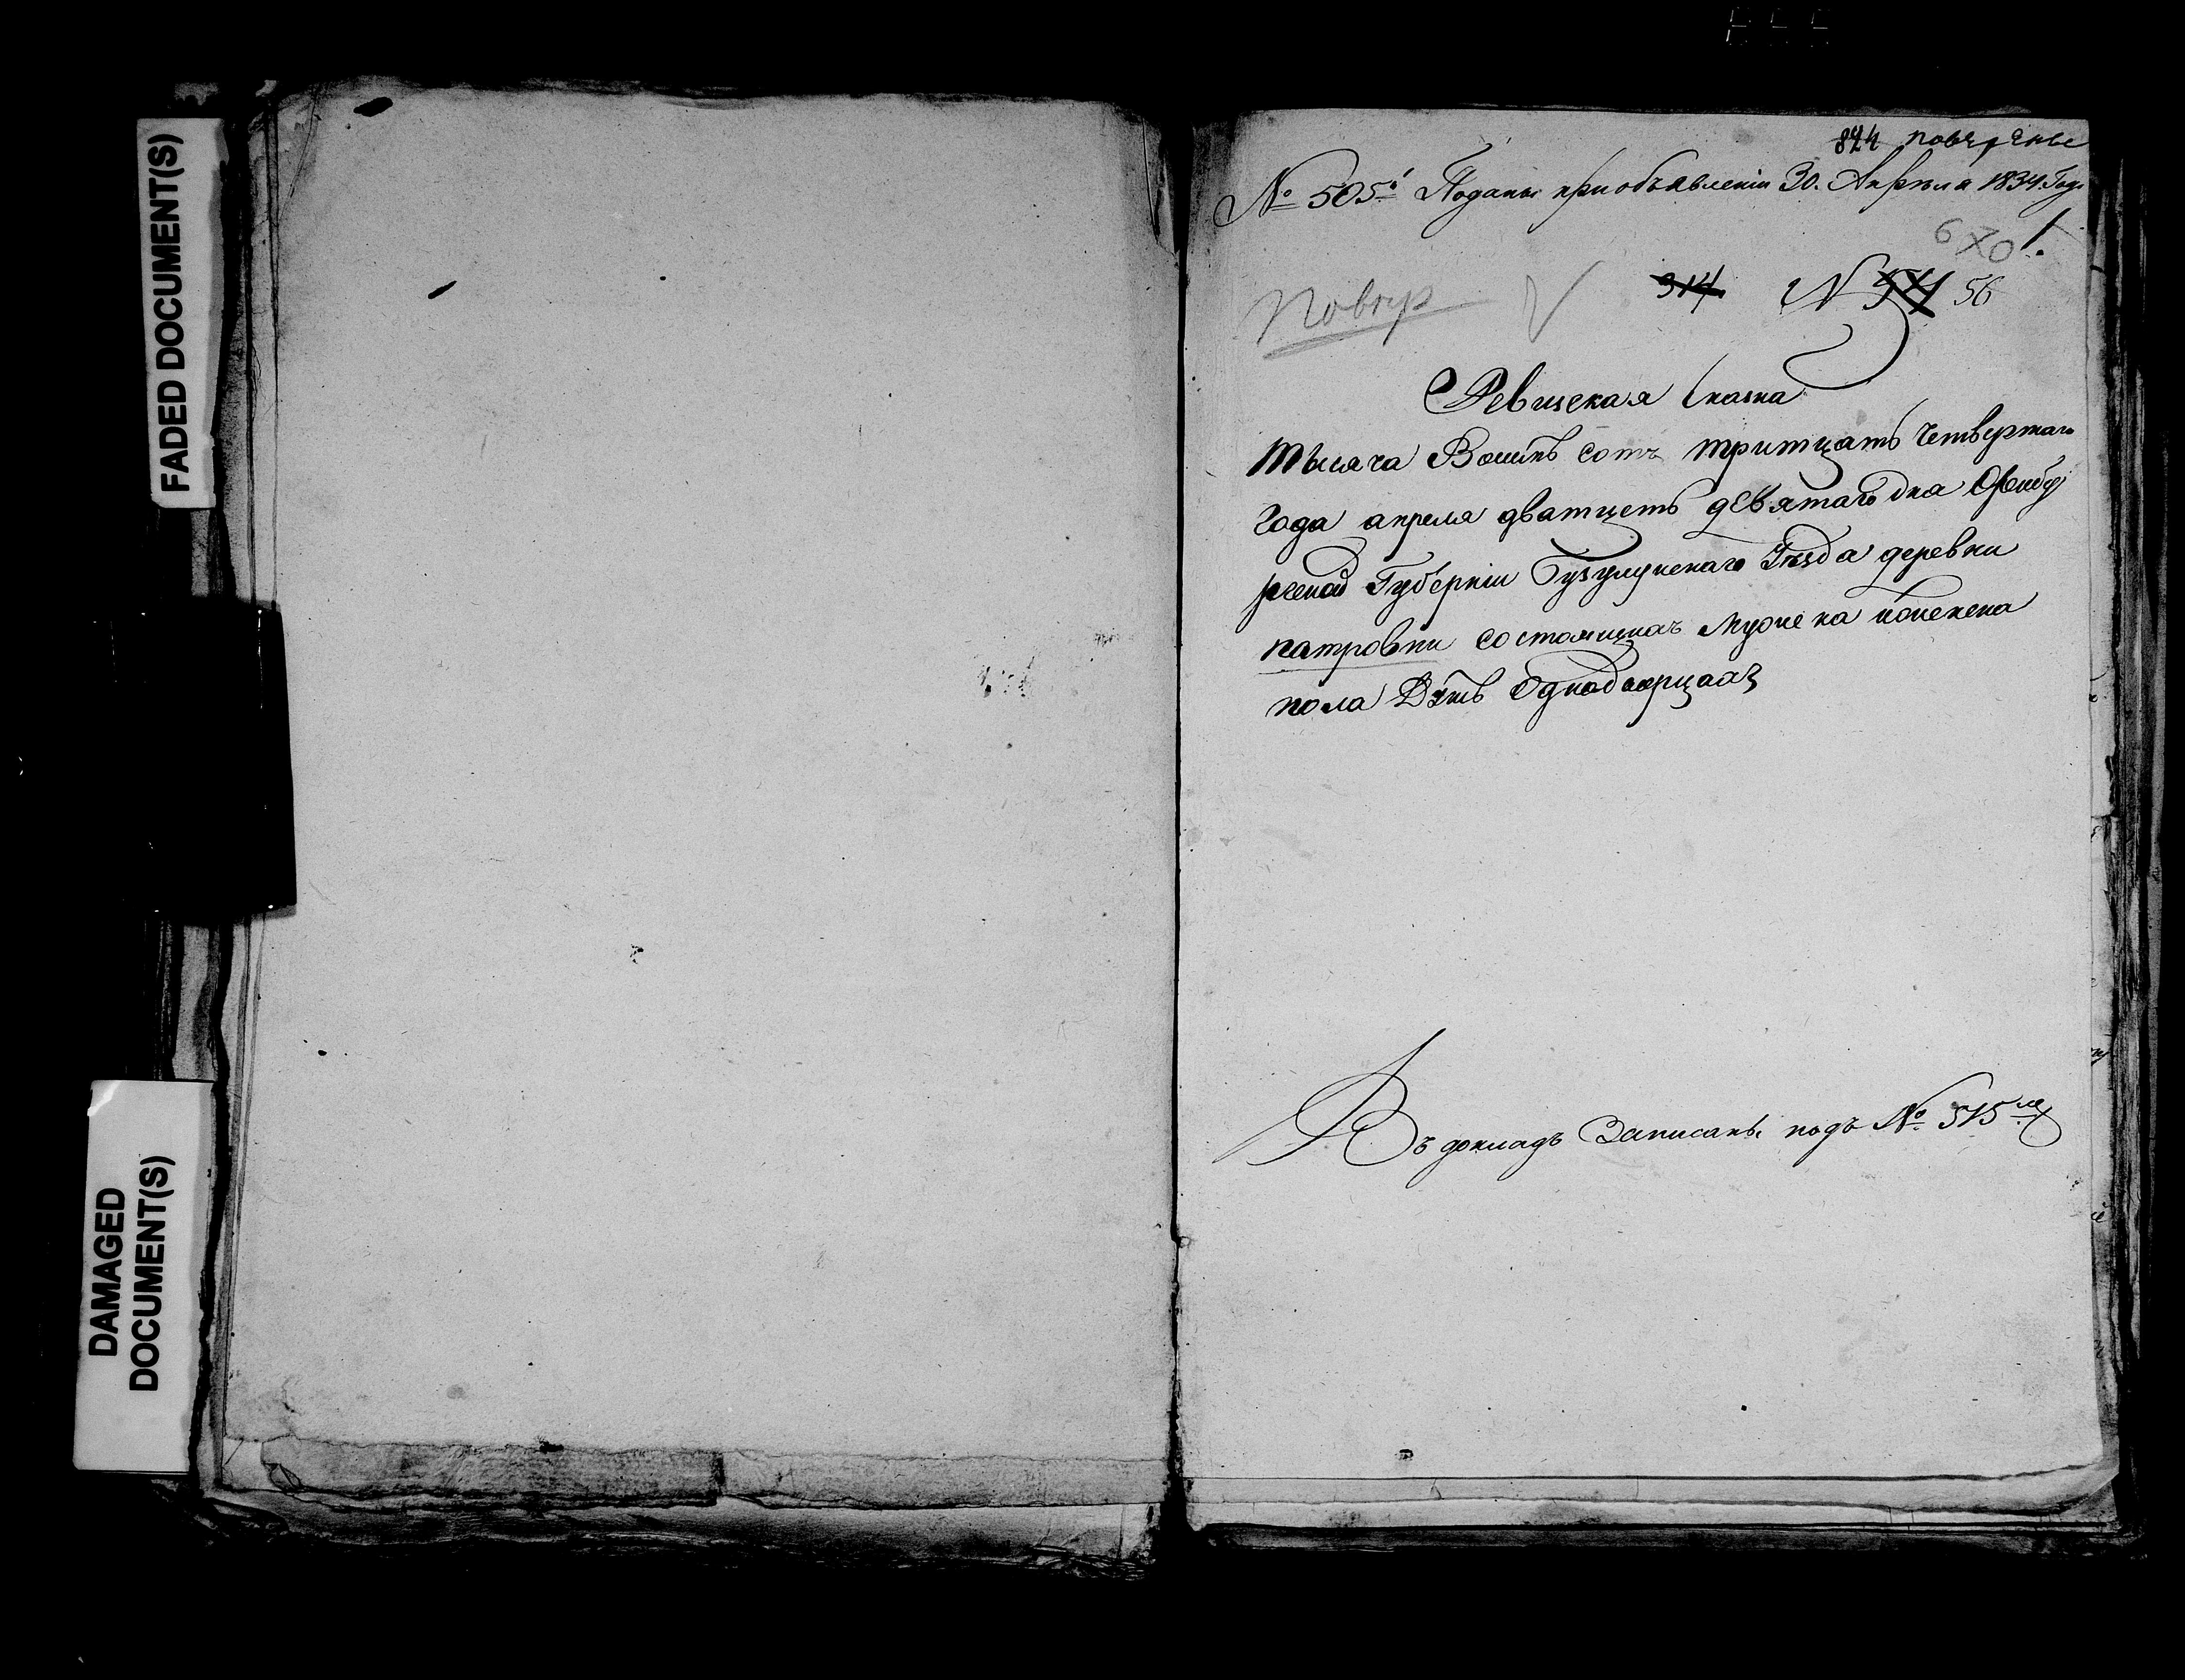 FADED DOCUMENT(S)
DAMAGED
DOCUMENT(S)
824 поверенье
№ 505й Поданы при объявлении 30. Апреля 1834 Года
670 1.
Повер
314 N 571 56
Ревиская сказка
тысяча Восимь сотъ тритцать четвертаго
Года апреля дватцеть девятаго дна Оренбу
ргской Губернiи Бузулукскаго Уезда деревни
патровки состоящихъ мужеска иженска
пола Детъ Однодворцахъ
Въ докладъ Записаны подъ № 515мъ